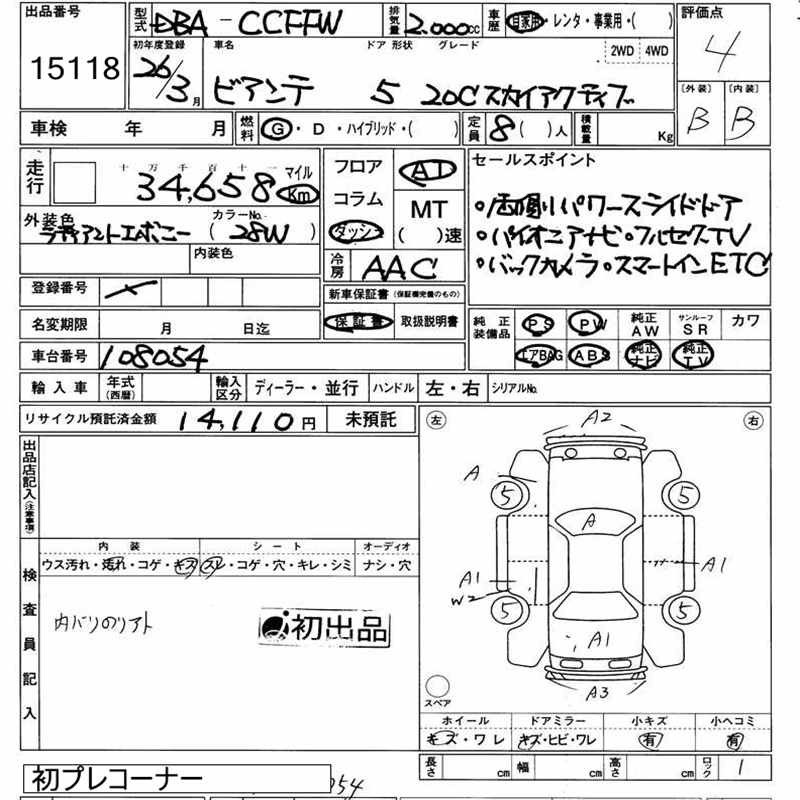 出品番号
15118
型式 DBA - CCFFW 排気量 2.000cc 車歴 自家用・レンタ・事業用・( )
評価点
4
初年度登録 車名 ドア 形状 グレード
26/3月 ビアンテ 5 20Cスカイアクティブ 2WD 4WD
〔外装〕 〔内装〕
B B
車検 年 月 燃料 G・D・ハイブリッド・( ) 定員 8( )人 積載量 Kg
走行 十 万 千 百 十 一
34,658 マイル Km
フロア コラム ダッシュ
AT
MT
( )速
外装色 カラーNo.
ラディアントエボニー ( 28W )
内装色
冷房 AAC
セールスポイント
・両側パワースライドドア
・パイオニアナビ・フルセグTV
・バックカメラ・スマートインETC
登録番号
新車保証書(保証権完備のもの)
保証書 取扱説明書
名変期限 月 日迄
純正装備品 PS PW 純正AW サンルーフSR カワ
エアBAG ABS 純正ナビ 純正TV
車台番号 108054
輸入車 年式(西暦) 輸入区分 ディーラー・並行 ハンドル 左・右 シリアルNo.
リサイクル預託済金額 14,110円 未預託
出品店記入(注意事項)
左 右
A2
A
5 5
A
A1 A1
W2
5 5
A1
A3
スペア
検査員記入
内装 シート オーディオ
ウス汚れ・汚れ・コゲ・キズ スレ・コゲ・穴・キレ・シミ ナシ・穴
内バリのリアト
初出品
ホイール ドアミラー 小キズ 小ヘコミ
キズ・ワレ キズ・ヒビ・ワレ 有 有
長さ cm 幅 cm 高さ cm ロック 1
初プレコーナー